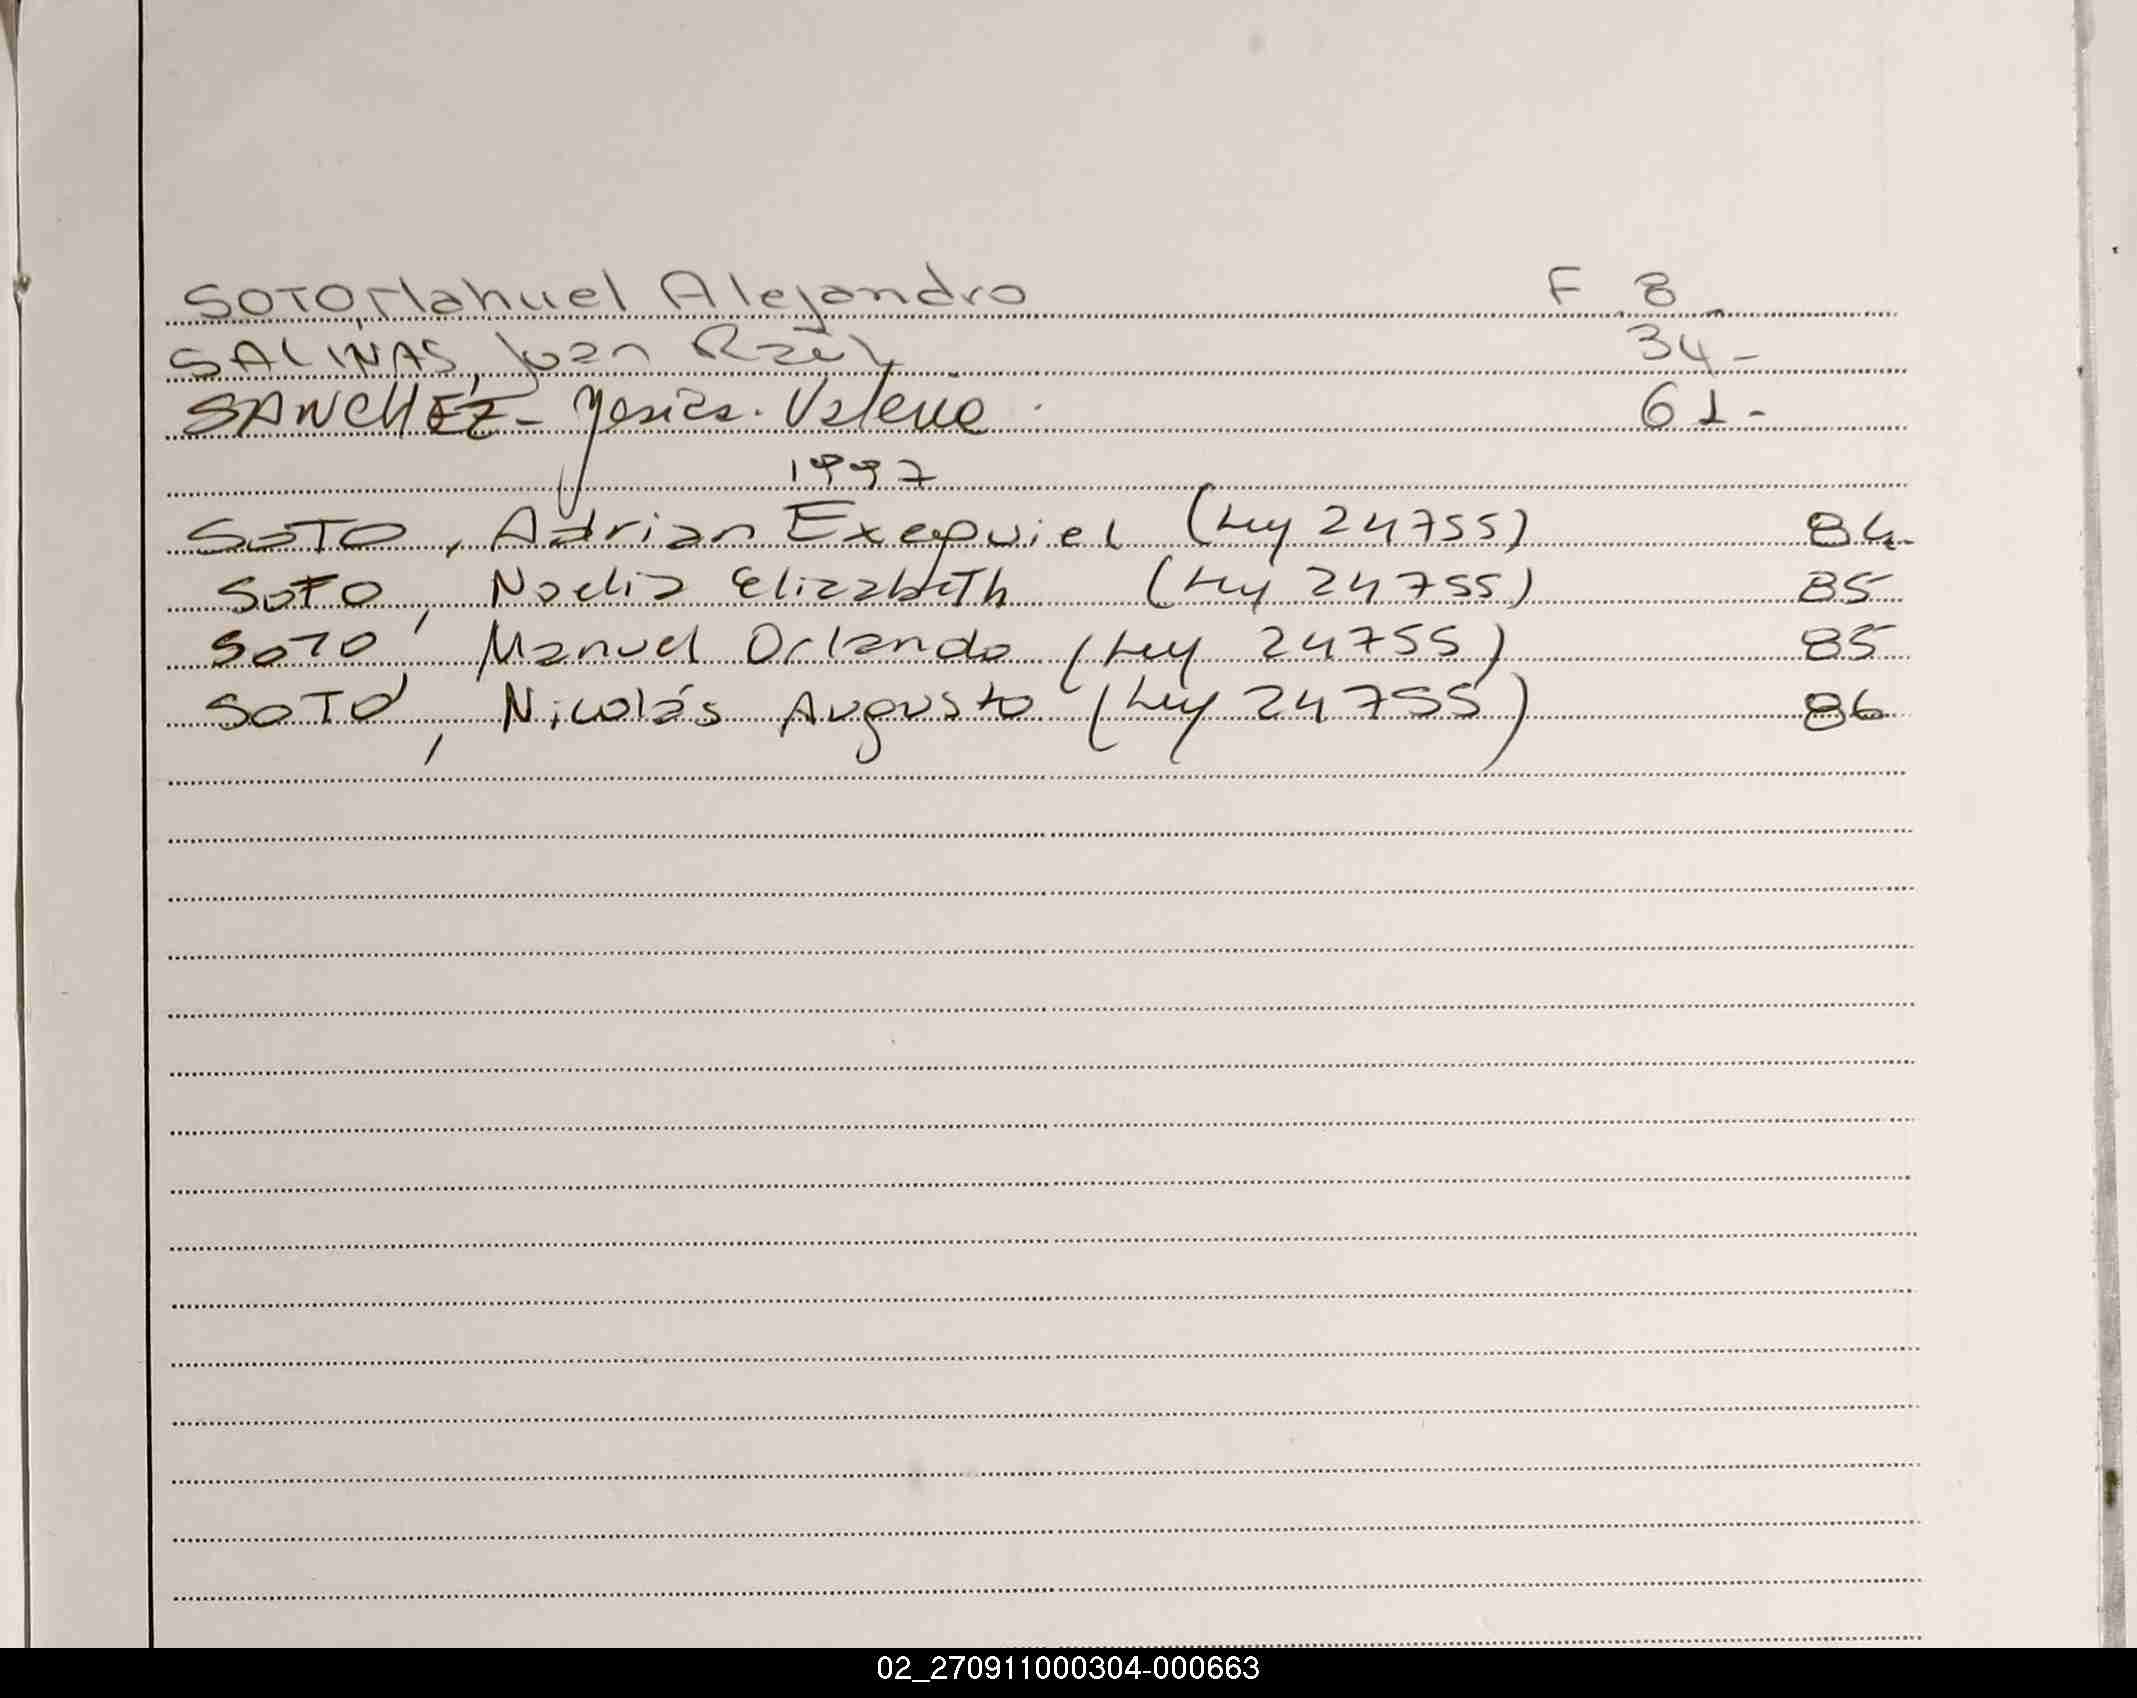 SOTO, Nahuel Alejandro F 8-
SALINAS, Juan Raúl 34-
SANCHEZ- Yesica. Valeria. 61-
1997
SOTO, Adrian Exequiel (Ley 24755) 84-
SOTO, Noelia Elizabeth (Ley 24755) 85
SOTO, Manuel Orlando (Ley 24755) 85
SOTO, Nicolás Augusto (Ley 24755) 86
02_270911000304-000663